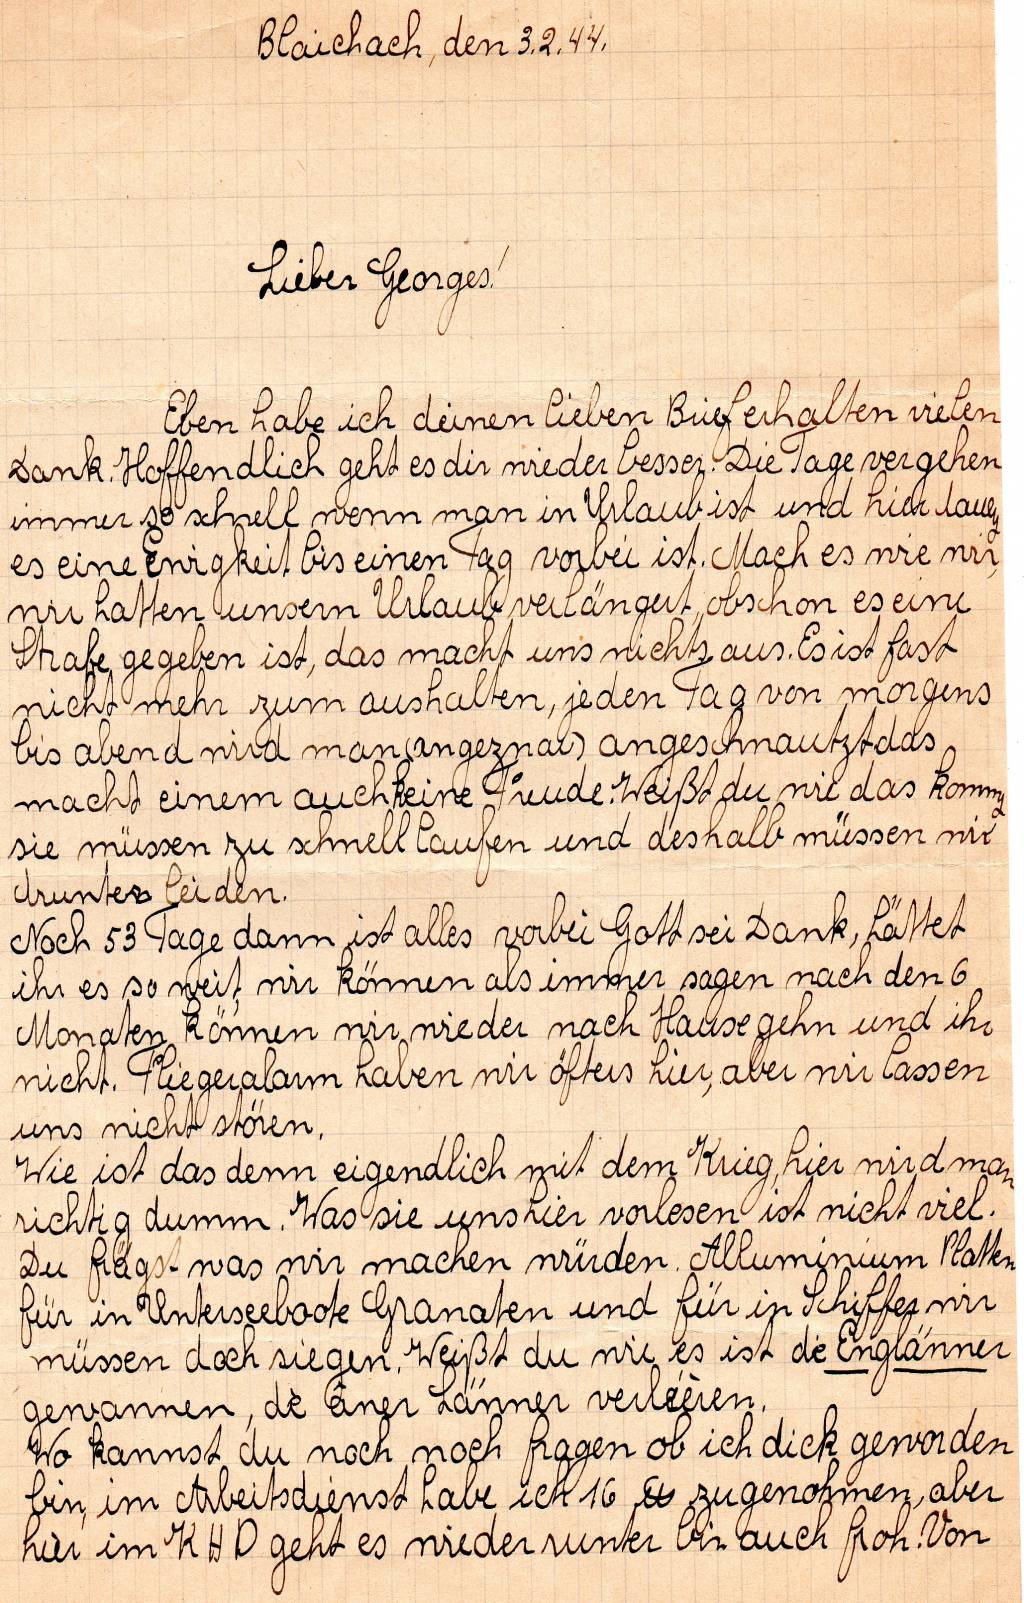 Blaichach, den 3.2.44.
Lieber Georges!
Eben habe ich deinen lieben Brief erhalten vielen
Dank. Hoffendlich geht es dir wieder besser. Die Tage vergehen
immer so schnell wenn man in Urlaub ist und hier dauert
es eine Ewigkeit bis einen Tag vorbei ist. Mach es wie wir,
wir hatten unsern Urlaub verlängert, obschon es eine
Strafe gegeben ist, das macht uns nichts aus. Es ist fast
nicht mehr zum aushalten, jeden Tag von morgens
bis abend wird man (angeznar) angeschnautzt das
macht einem auch keine Freude. Weißt du wie das kommt
sie müssen zu schnell laufen und deshalb müssen wir
drunter leiden.
Noch 53 Tage dann ist alles vorbei Gott sei Dank, hättet
ihr es so weit, wir können als immer sagen nach den 6
Monaten können wir wieder nach Hause gehn und ihr
nicht. Fliegeralarm haben wir öfters hier, aber wir lassen
uns nicht stören.
Wie ist das denn eigendlich mit dem Krieg, hier wird man
richtig dumm. Was sie uns hier vorlesen ist nicht viel.
Du frägst was wir machen würden. Alluminium Platten
für in Unterseeboote Granaten und für in Schiffe, wir
müssen doch siegen. Weißt du wie es ist de Englänner
gewannen, de äner Länner verléieren.
Wo kannst du noch noch fragen ob ich dick geworden
bin, im Arbeitsdienst habe ich 16 zugenohmen, aber
hier im K H D geht es wieder runter bin auch froh. Von